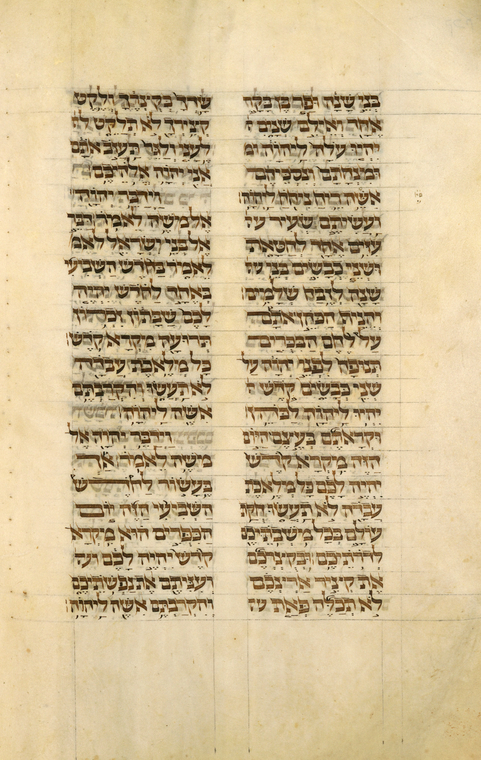 בני שנה ופר בן בקר
אחד ואילם שנים
יהיו עלה ליהוה ומ
ומנחתם ונסכיהם
אשה ריח ניחח ליהוה
ועשיתם שעיר עז
עזים אחד לחטאת
ושני כבשים בני שנ
שנה לזבח שלמים
והניף הכהן אתם
על לחם הבכרים
תנופה לפני יהוה על
שני כבשים קדש י
יהיו ליהוה לכהן
וקראתם בעצם היום
הזה מקרא קדש
יהיה לכם כל מלאכת
עבדה לא תעשו חקת
עולם בכל מושבתיכם
לדרתיכם ובקצרכם
את קציר ארצכם
לא תכלה פאת שד
שדך בקצרך ולקט
קצירך לא תלקט ל
לעני ולגר תעזב אתם
אני יהוה אלהיכם
וידבר יהוה
אל משה לאמר דבר
אל בני ישראל לאמ
לאמר בחדש השביעי
באחד לחדש יהיה
לכם שבתון זכרון
תרועה מקרא קדש
כל מלאכת עבדה
לא תעשו והקרבתם
אשה ליהוה
וידבר יהוה אל
משה לאמר אך
בעשור לחדש
השביעי הזה יום
הכפרים הוא מקרא
קדש יהיה לכם וע
ועניתם את נפשתיכם
והקרבתם אשה ליהוה